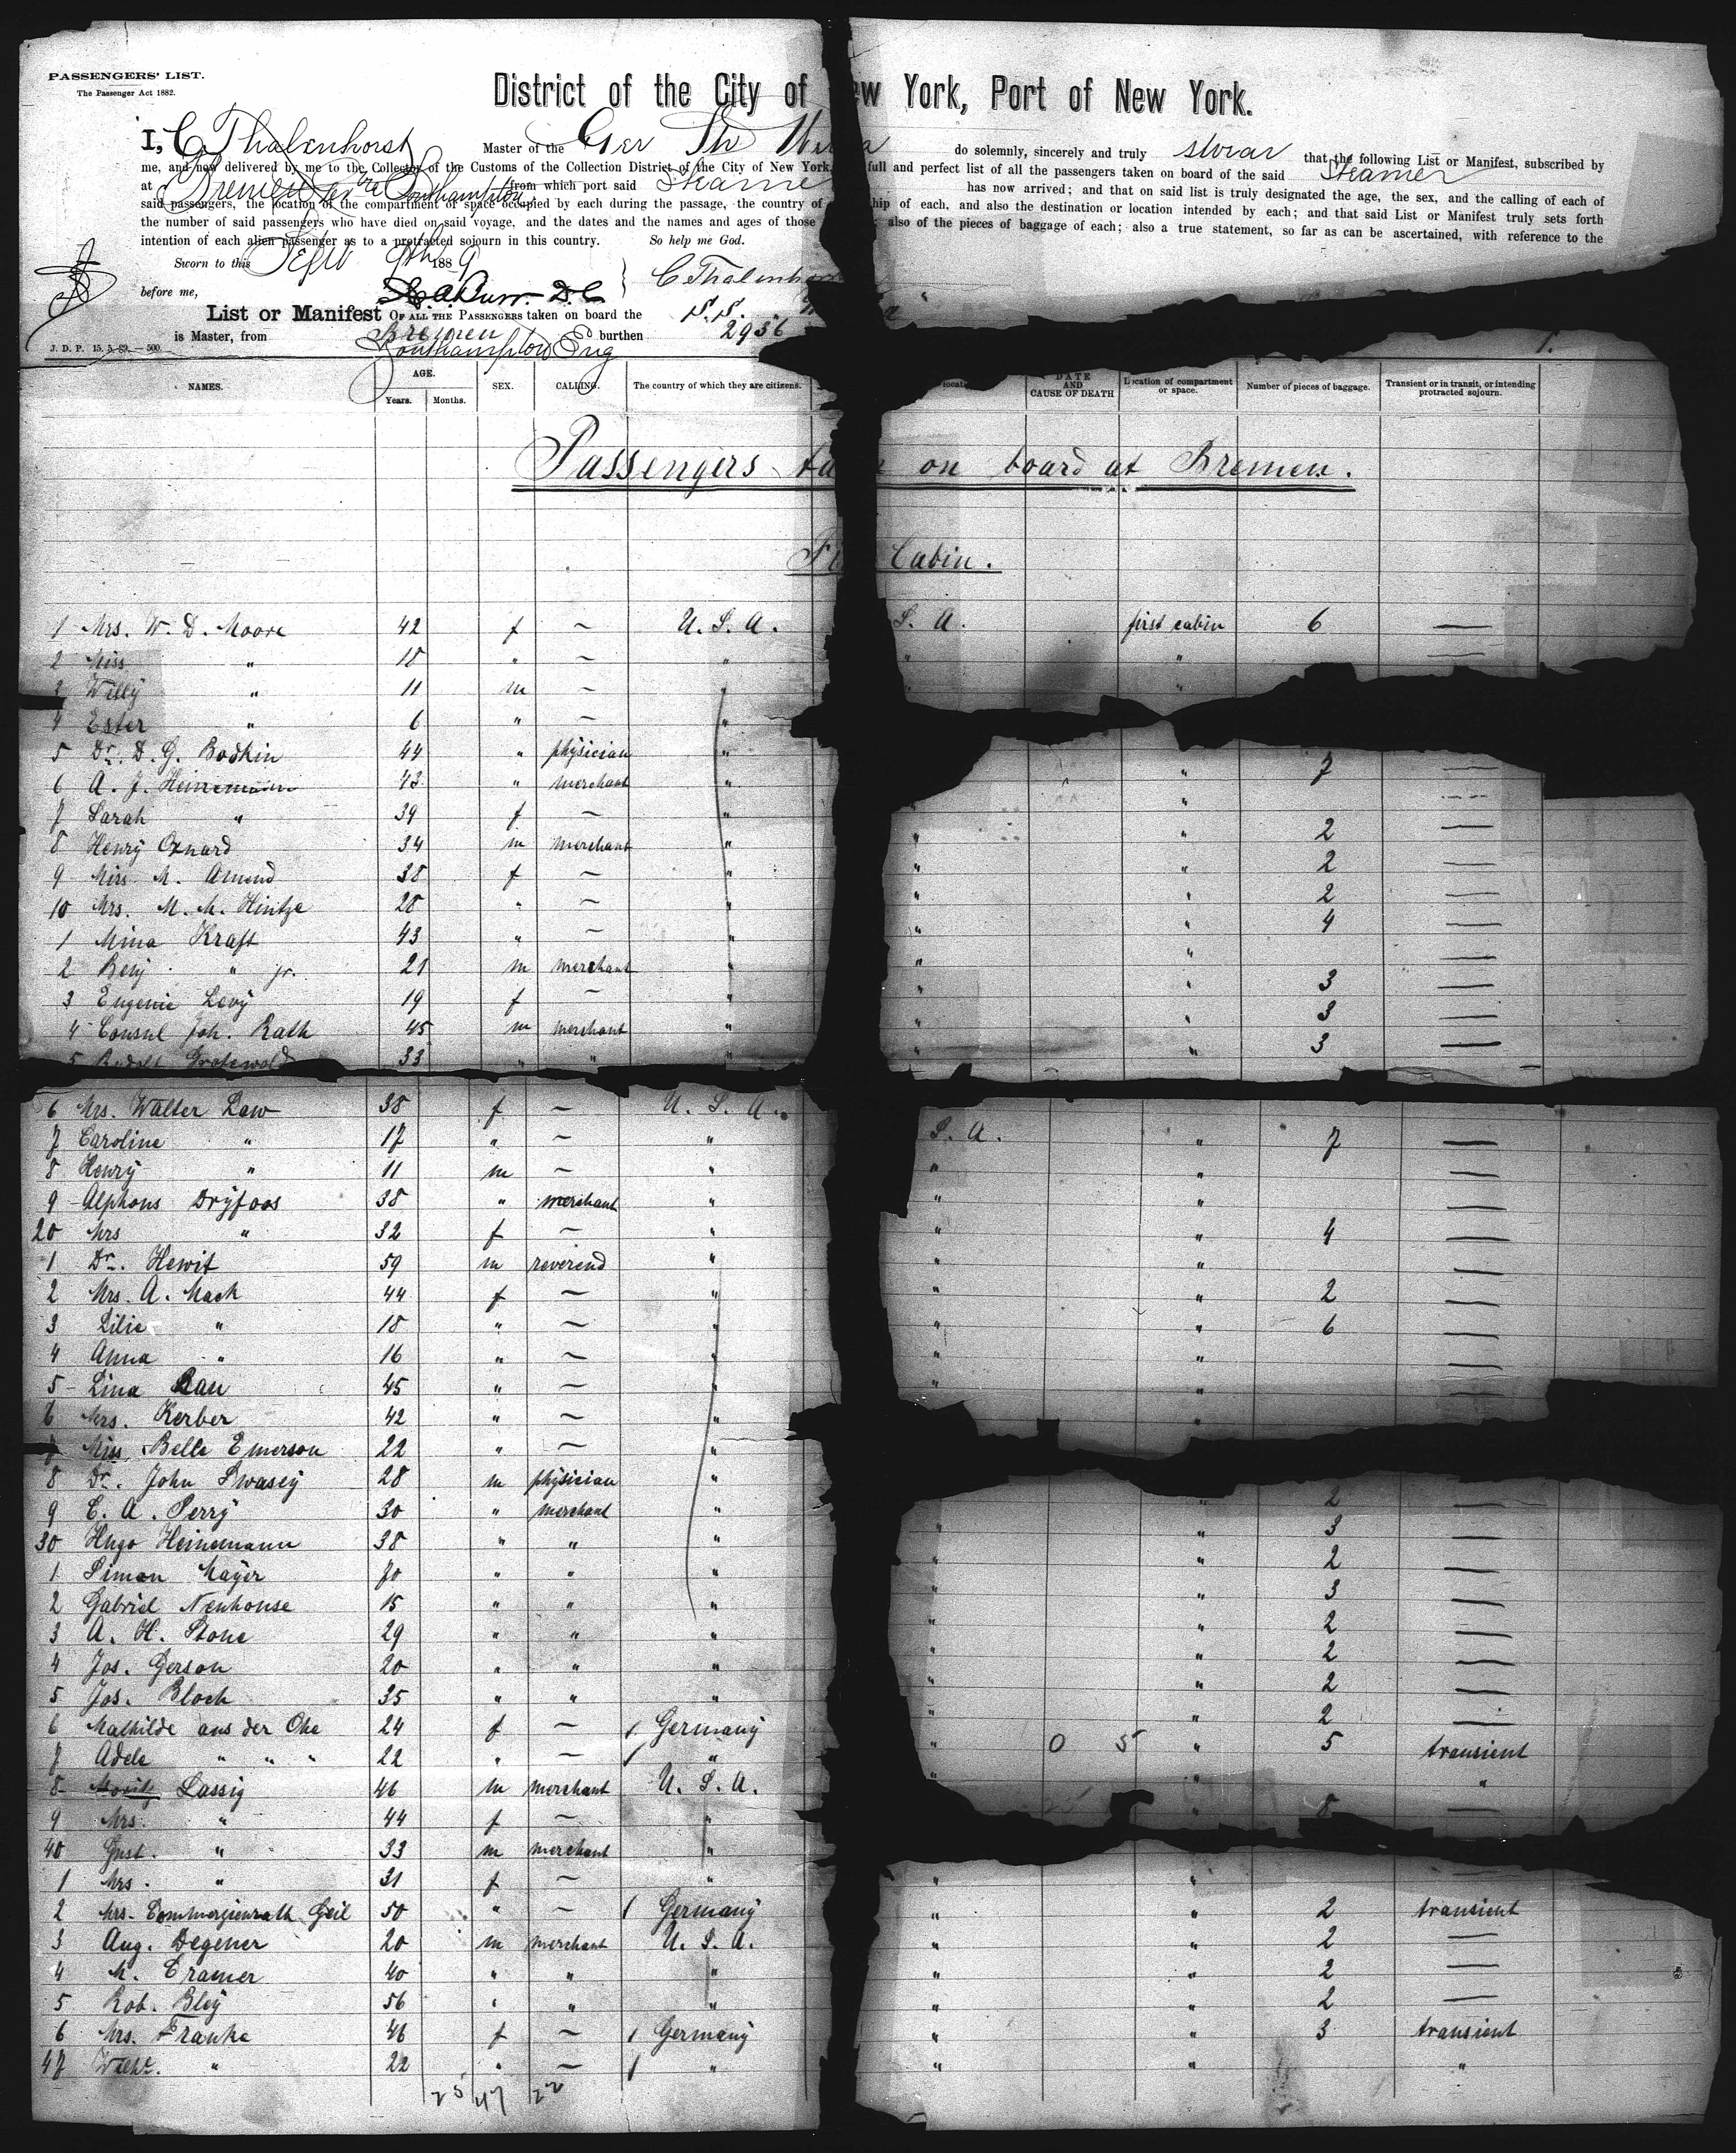 PASSENGERS' LIST.
The Passenger Act 1882.
District of the City of ew York, Port of New York.
I, C Thalenhorst Master of the Ger Str Werra do solemnly, sincerely and truly swear that the following List or Manifest, subscribed by
me, and now delivered by me to the Collector of the Customs of the Collection District of the City of New York, full and perfect list of all the passengers taken on board of the said Steamer
at Bremen Southampton from which port said Steame has now arrived; and that on said list is truly designated the age, the sex, and the calling of each of
said passengers, the location of the compartment of space occupied by each during the passage, the country of hip of each, and also the destination or location intended by each; and that said List or Manifest truly sets forth
the number of said passengers who have died on said voyage, and the dates and the names and ages of those ; also of the pieces of baggage of each; also a true statement, so far as can be ascertained, with reference to the
intention of each alien passenger as to a protracted sojourn in this country. So help me God.
Sworn to this Sept 9th 1889 C Thalenhors
before me, D.C.
List or Manifest OF ALL THE PASSENGERS taken on board the S.S.
is Master, from Bremen Southampton Eng burthen 2956
J. D. P. 15. 5-89.—500. 1.
NAMES. AGE. Years. Months. SEX. CALLING. The country of which they are citizens. DATE AND CAUSE OF DEATH Location of compartment or space. Number of pieces of baggage. Transient or in transit, or intending protracted sojourn.
Passengers ta n on board at Bremen.
Fi Cabin.
1 Mrs. W. D. Moore 42 f — U. S. A. S. A. first cabin 6 —
2 Miss " 18 " — " " " —
3 Willy " 11 m — " "
4 Ester " 6 " — "
5 Dr. D. G. Bodkin 44 " physician " " 7 —
6 A. J. Heinemann 43 " merchant " " —
7 Sarah " 39 f — " " " 2 —
8 Henry Oxnard 34 m merchant " " " 2 —
9 Mrs. M. Amend 38 f — " " " 2 —
10 Mrs. M. M. Hintze 28 " — " " " 4 —
1 Mina Kraft 43 " — " " " —
2 Benj. " jr. 21 m merchant " " " 3 —
3 Eugenie Levy 19 f — " " " 3 —
4 Consul Joh. Rath 45 m merchant " " " 3 —
5 Rudolf Grotewold 33 " " "
6 Mrs. Walter Law 38 f — U. S. A. S. A. " 7 —
7 Caroline " 17 " — " " " —
8 Henry " 11 m — " " " —
9 Alphons Dryfoos 38 " merchant " " " 4 —
20 Mrs " 32 f — " " " —
1 Dr. Hewit 59 m reverend " " " 2 —
2 Mrs. A. Mack 44 f — " " " 6 —
3 Lilie " 18 " — " " " —
4 Anna " 16 " — " " " —
5 Lina Rau 45 " — " "
6 Mrs. Kerber 42 " — "
7 Miss. Belle Emerson 22 " — " " 2 —
8 Dr. John Swasey 28 m physician " " " 3 —
9 C. A. Perry 30 " merchant " " " 2 —
30 Hugo Heinemann 38 " " " " " 3 —
1 Simon Mayer 70 " " " " " 2 —
2 Gabriel Neuhouse 15 " " " " " 2 —
3 A. H. Stone 29 " " " " " 2 —
4 Jos. Gerson 20 " " " " " 2 —
5 Jos. Bloch 35 " " "
6 Mathilde aus der Ohe 24 f — / Germany " 0 5 " 5 transient
7 Adele " " " 22 " — / " " " "
8 Moritz Lassig 46 m merchant U. S. A. " 8 —
9 Mrs. " 44 f — "
40 Gust. " 33 m merchant " —
1 Mrs. " 31 f — " " "
2 Mrs. Commerzienrath Geil 50 " — / Germany " " 2 transient
3 Aug. Degener 20 m merchant U. S. A. " " 2 —
4 M. Cramer 40 " " " " " 2 —
5 Rob. Bley 56 " " " " " 2 —
6 Mrs. Franke 46 f — / Germany " " 3 transient
47 " 22 " — / " " " "
25 47 22